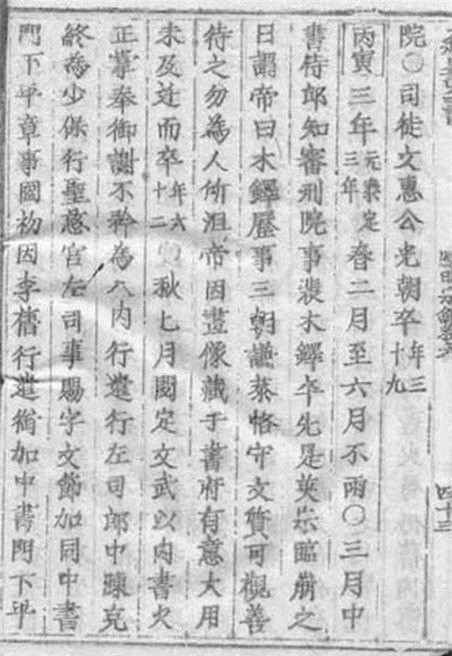 院○司徒文惠公光朝卒年三十九
丙寅三年元泰定三年春二月至六月不雨○三月中
書侍郎知審刑院事裴木鐸卒先是英宗臨崩之
日謂帝曰木鐸歷事三朝謙恭恪守文質可觀善
待之勿為人所沮帝因畫像藏于書府有意大用
未及迁而卒年六十二秋七月閱定文武以内書火
正掌奉御謝不矜為入内行遣行左司郎中陳克
終為少保行聖慈宫左司事賜字文節加同中書
門下平章事國初因李舊行遣銜加中書門下平
四十三